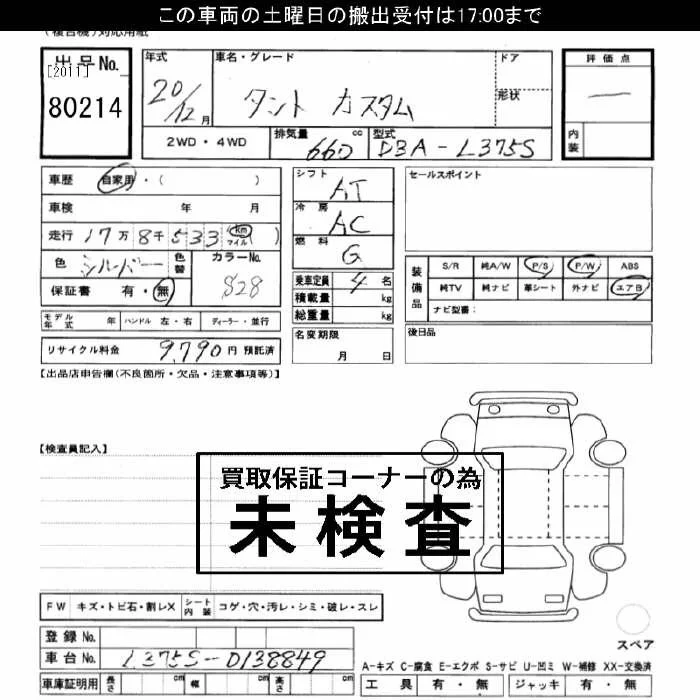 この車両の土曜日の搬出受付は17:00まで
(複合機)対応用紙
出品No.
[2011]
80214
年式
20/12月
車名・グレード
タント カスタム
ドア
形状
評価点
—
内装
2WD・4WD
排気量
660 cc
型式
DBA-L375S
車歴 自家用・( )
車検 年 月
走行 17万8千533 km マイル ( )
色 シルバー 色替
カラーNo.
S28
保証書 有・無
モデル年式 年 ハンドル 左・右 ディーラー・並行
リサイクル料金 9,790円 預託済
シフト
AT
冷房
AC
燃料
G
乗車定員 4名
積載量 kg
総重量 kg
名変期限
月 日
セールスポイント
装備品
S/R 純A/W P/S P/W ABS
純TV 純ナビ 革シート 外ナビ エアB
ナビ型番:
後日品
【出品店申告欄(不良個所・欠品・注意事項等)】
【検査員記入】
買取保証コーナーの為
未検査
FW キズ・トビ石・割レX シート内装 コゲ・穴・汚レ・シミ・破レ・スレ
登録No.
車台No. L375S-0138849
車庫証明用 長さ cm 幅 cm 高さ cm
スペア
A-キズ C-腐食 E-エクボ S-サビ U-凹ミ W-補修 XX-交換済
工具 有・無 ジャッキ 有・無